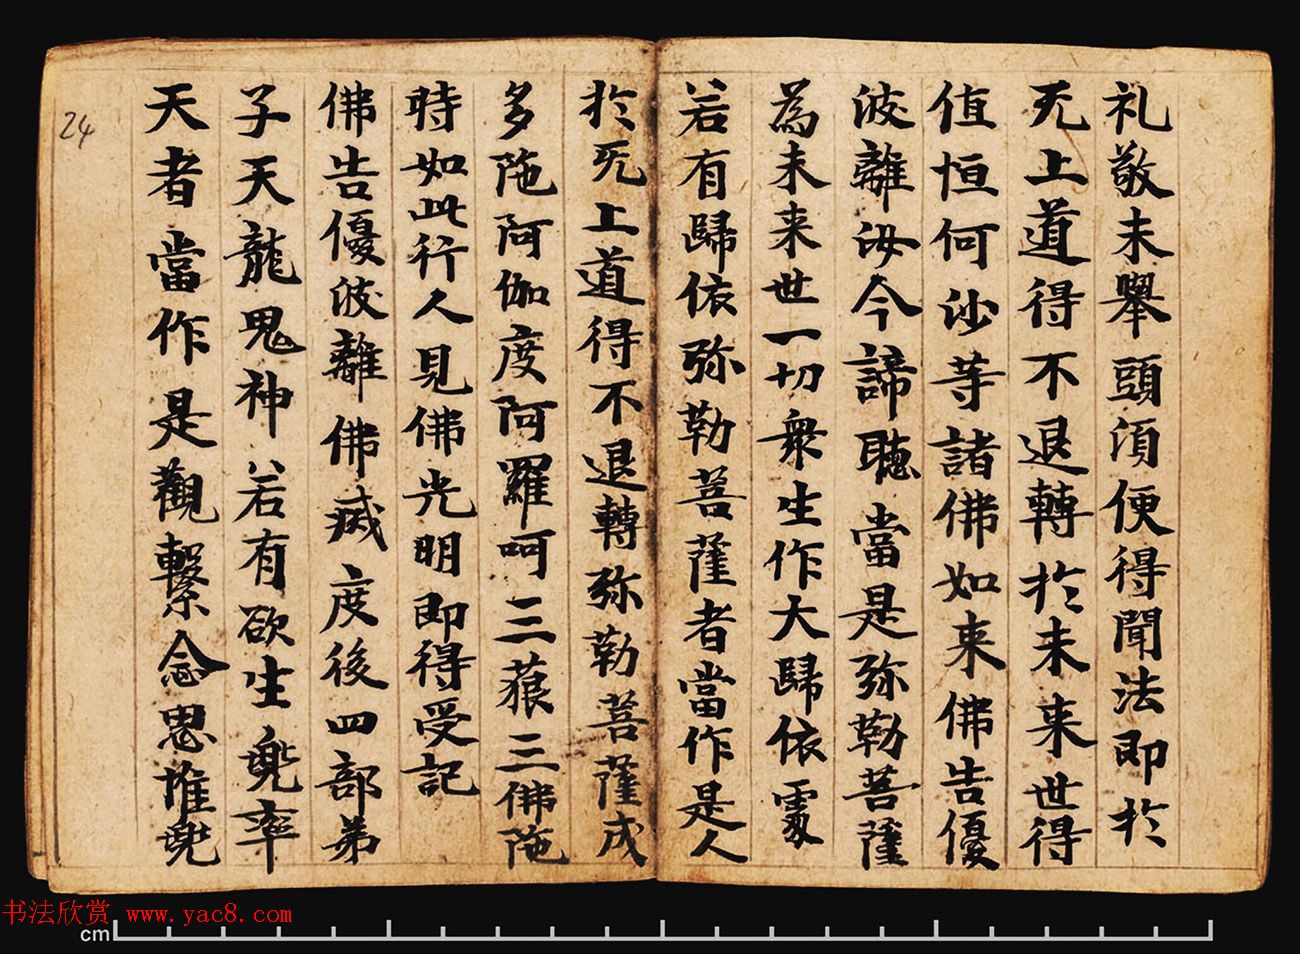 礼敬未舉頭須便得聞法即於
无上道得不退轉於未来世得
值恒何沙等諸佛如来佛告優
波離汝今諦聽當是弥勒菩薩
為未来世一切衆生作大歸依處
若有歸依弥勒菩薩者當作是人
於无上道得不退轉弥勒菩薩成
多陁阿伽度阿羅呵三藐三佛陁
時如此行人見佛光明即得受記
佛告優波離佛滅度後四部弟
子天龍鬼神若有欲生兜率
天者當作是觀繫念思惟兜
24
书法欣赏 www.yac8.com
cm